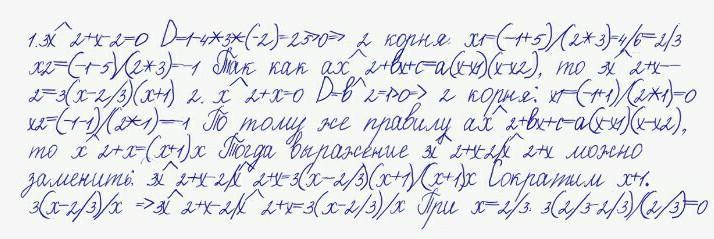 1.3x^2+x-2=0 D=1-4*3*(-2)=25>0=> 2 корня: x1=(-1+5)/(2*3)=4/6=2/3
x2=(-1-5)/(2*3)=-1 Так как ax^2+bx+c=a(x-x1)(x-x2), то 3x^2+x-
2=3(x-2/3)(x+1) 2. x^2+x=0 D=b^2=1>0=> 2 корня: x1=(-1+1)/(2*1)=0
x2=(-1-1)/(2*1)=-1 По тому же правилу ax^2+bx+c=a(x-x1)(x-x2),
то x^2+x=(x+1)x Тогда выражение 3x^2+x-2/x^2+x можно
заменить: 3x^2+x-2/x^2+x=3(x-2/3)(x+1)/(x+1)x Сократим x+1.
3(x-2/3)/x =>3x^2+x-2/x^2+x=3(x-2/3)/x При x=2/3: 3(2/3-2/3)/(2/3)=0